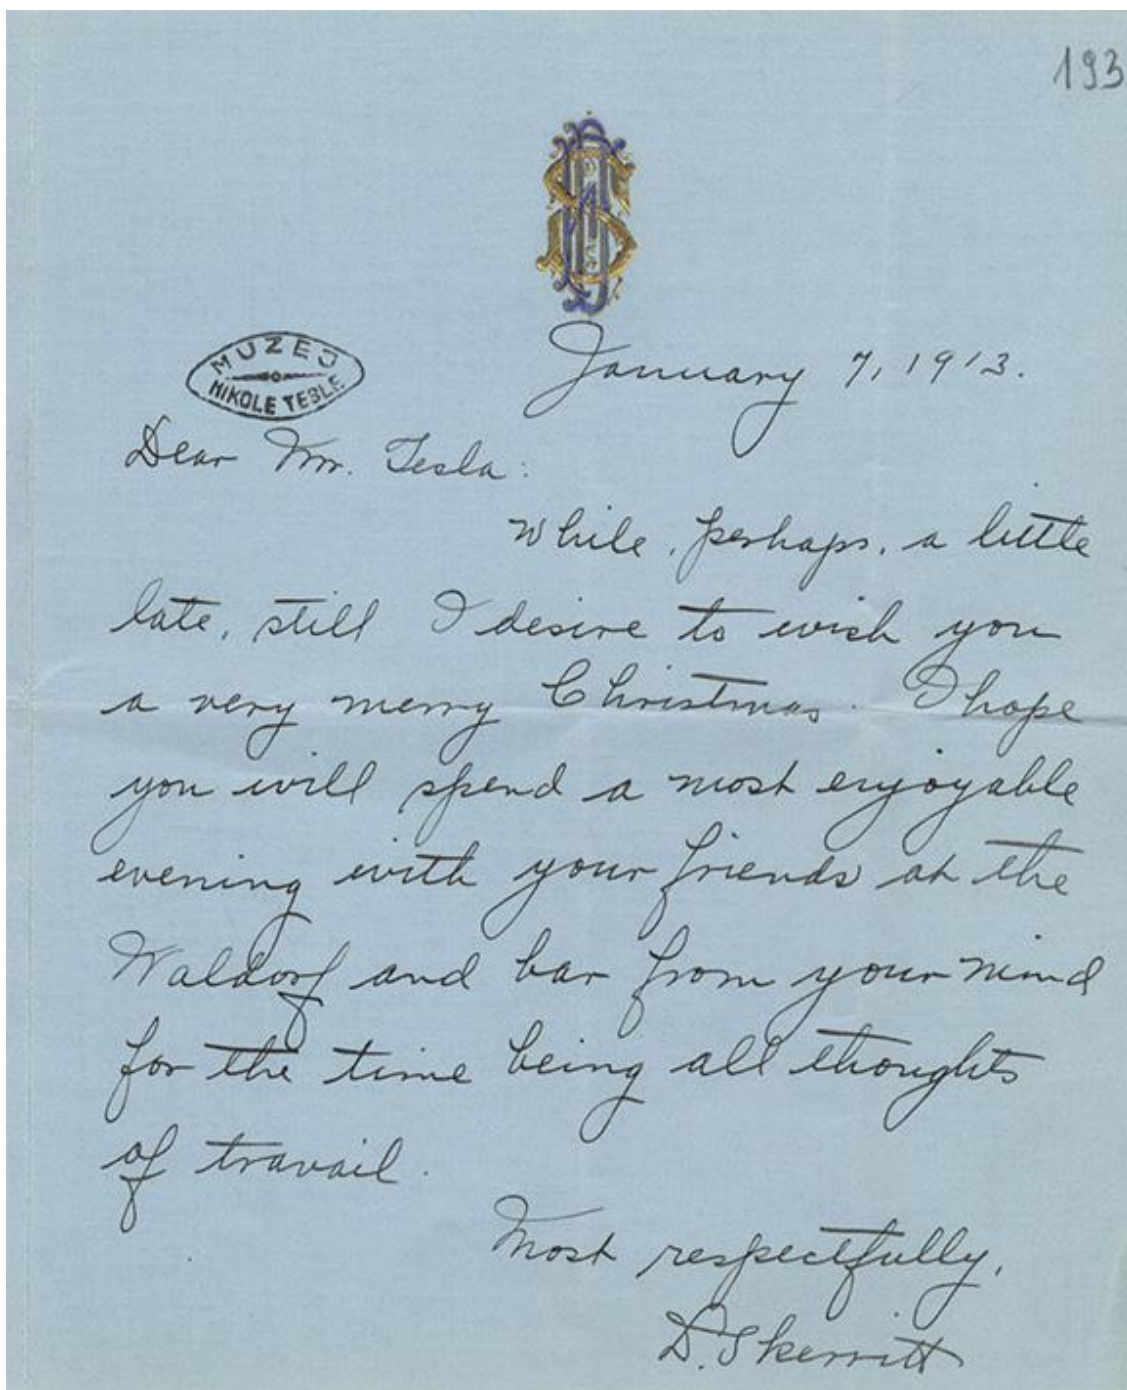 193
MUZEJ
NIKOLE TESLE
January 7, 1913.
Dear Mr. Tesla:
While, perhaps, a little
late, still I desire to wish you
a very merry Christmas. I hope
you will spend a most enjoyable
evening with your friends at the
Waldorf and bar from your mind
for the time being all thoughts
of travail.
Most respectfully,
D. Skerritt